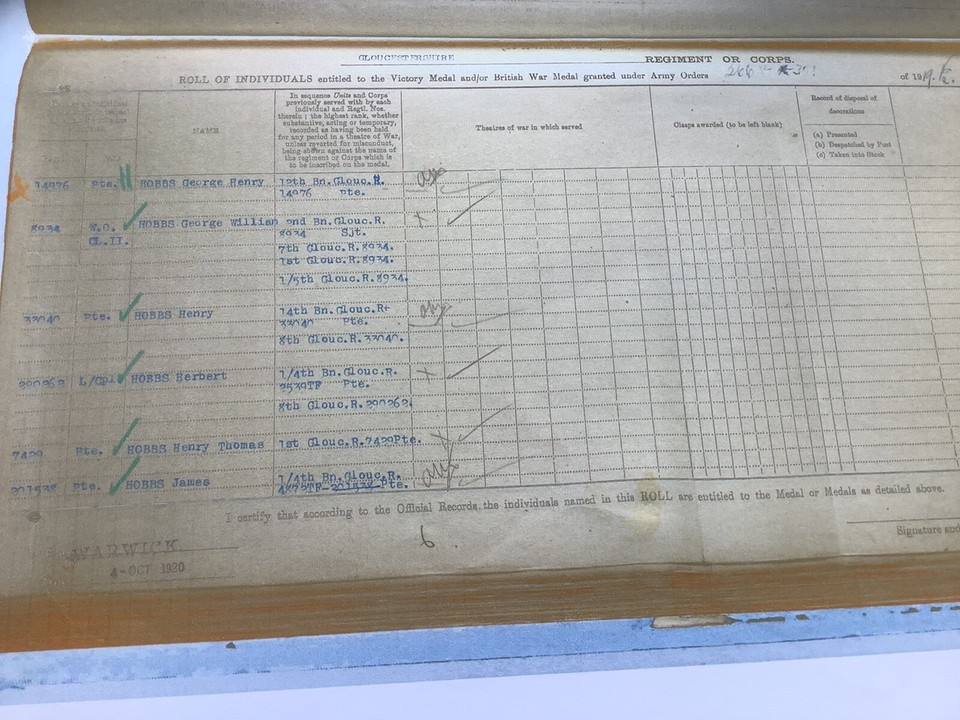 GLOUCESTERSHIRE REGIMENT OR CORPS.
ROLL OF INDIVIDUALS entitled to the Victory Medal and/or British War Medal granted under Army Orders 266 of 1919.
NAME
In sequence Units and Corps
previously served with by each
individual and Regtl. Nos.
therein; the highest rank, whether
substantive, acting or temporary,
recorded as having been held
for any period in a theatre of War,
unless reverted for misconduct,
being shown against the name of
the regiment or Corps which is
to be inscribed on the medal.
Theatres of war in which served
Clasps awarded (to be left blank)
Record of disposal of
decorations
(a) Presented
(b) Despatched by Post
(c) Taken into Stock
14976 Pte. HOBBS George Henry 12th Bn.Glouc.R.
14976 Pte.
8934 W.O. HOBBS George William 2nd Bn.Glouc.R.
CL.II. 8934 Sjt.
7th Glouc.R.8934.
1st Glouc.R.8934.
1/5th Glouc.R.8934.
33040 Pte. HOBBS Henry 14th Bn.Glouc.R.
33040 Pte.
8th Glouc.R.33040.
290262 L/Cpl HOBBS Herbert 1/4th Bn.Glouc.R.
2539TF Pte.
8th Glouc.R.290262.
7429 Pte. HOBBS Henry Thomas 1st Glouc.R.7429Pte.
201538 Pte. HOBBS James 1/4th Bn.Glouc.R.
4873TF-201538-Pte.
I certify that according to the Official Records the individuals named in this ROLL are entitled to the Medal or Medals as detailed above.
6.
Signature and
WARWICK
4-OCT 1920